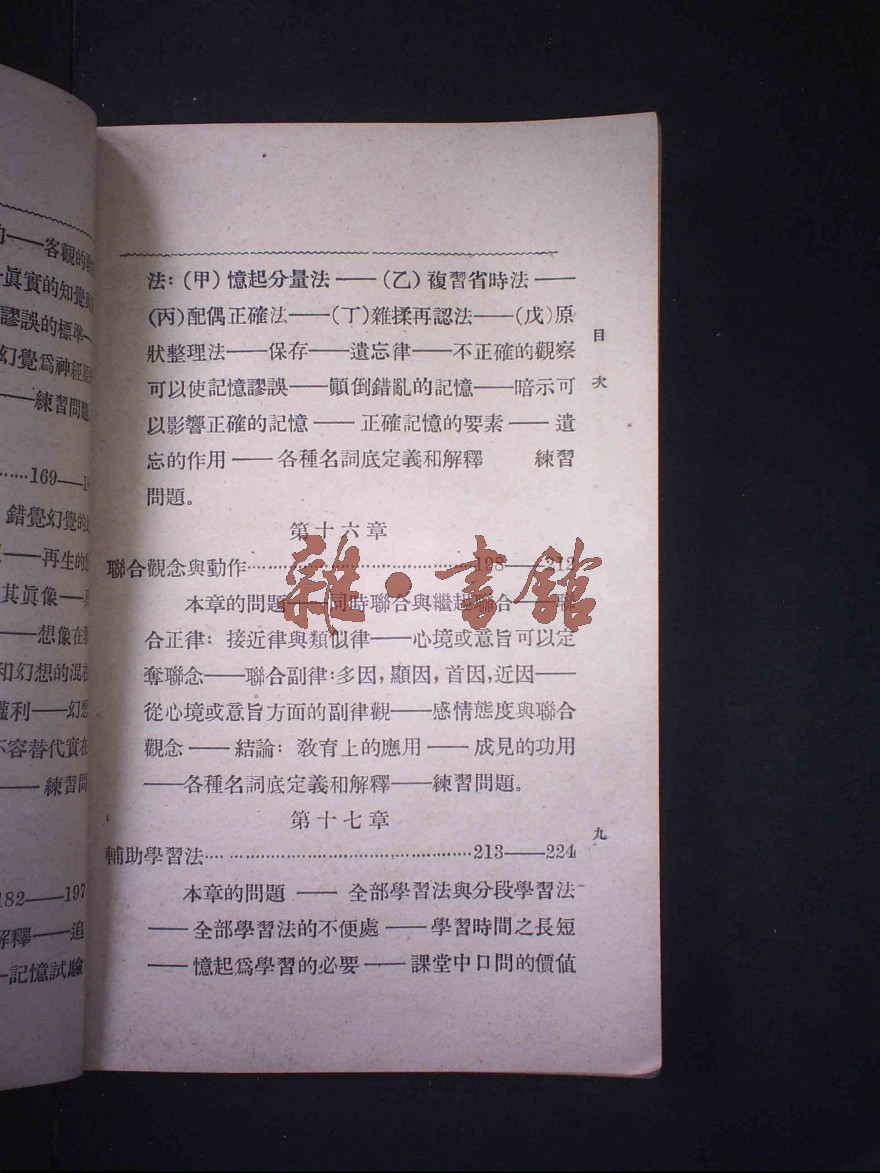 的——客觀的
真實的知覺
謬誤的標準—
幻覺爲神經
——練習問題
……169——
錯覺幻覺的
——再生的
其眞像——
——想像在
和幻想的混
權利——幻想
不容替代實在
——練習問
182——197
解釋——追
—記憶試驗
法：(甲)憶起分量法——(乙)複習省時法——
(丙)配偶正確法——(丁)雜揉再認法——(戊)原
狀整理法——保存——遺忘律——不正確的觀察
可以使記憶謬誤——顚倒錯亂的記憶——暗示可
以影響正確的記憶——正確記憶的要素——遺
忘的作用——各種名詞底定義和解釋　　練習
問題。
第十六章
聯合觀念與動作……………………………198——212
本章的問題——同時聯合與繼起聯合——
合正律：接近律與類似律——心境或意旨可以定
奪聯念——聯合副律：多因，顯因，首因，近因——
從心境或意旨方面的副律觀——感情態度與聯合
觀念——結論：敎育上的應用——成見的功用
——各種名詞底定義和解釋——練習問題。
第十七章
輔助學習法……………………………………213——224
本章的問題——全部學習法與分段學習法
——全部學習法的不便處——學習時間之長短
——憶起爲學習的必要——課堂中口問的價値
目次
九
雜·書館